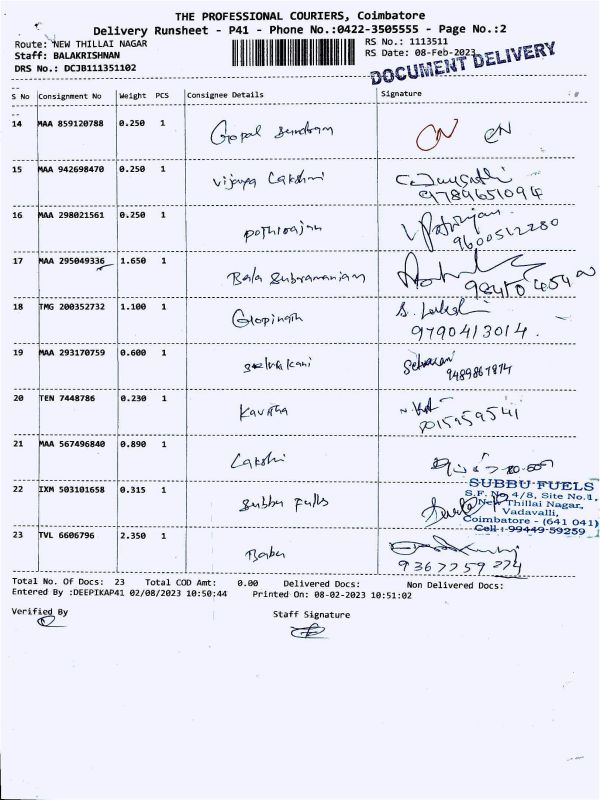 THE PROFESSIONAL COURIERS, Coimbatore
Delivery Runsheet - P41 - Phone No.:0422-3505555 - Page No.:2
Route: NEW THILLAI NAGAR
RS No.: 1113511
Staff: BALAKRISHNAN
RS Date: 08-Feb-2023
DRS No.: DCJB111351102
DOCUMENT DELIVERY
S No Consignment No Weight PCS Consignee Details Signature
14 MAA 859120788 0.250 1 Gopal Sundram
15 MAA 942698470 0.250 1 Vijaya Lakshmi
9789651094
16 MAA 298021561 0.250 1 pothirajan
9600512280
17 MAA 295049336 1.650 1 Bala Subramaniam
18 TMG 200352732 1.100 1 Gopinath
9790413014.
19 MAA 293170759 0.600 1 selvakani
20 TEN 7448786 0.230 1 Kavitha
21 MAA 567496840 0.890 1
22 IXM 503101658 0.315 1 Subbu
SUBBU FUELS
S.F. No 4/8, Site No.1,
New Thillai Nagar,
Vadavalli,
Coimbatore - (641 041)
Cell : 99449 59259
23 TVL 6606796 2.350 1 Babu
9367759274
Total No. Of Docs: 23 Total COD Amt: 0.00 Delivered Docs: Non Delivered Docs:
Entered By :DEEPIKAP41 02/08/2023 10:50:44 Printed On: 08-02-2023 10:51:02
Verified By Staff Signature